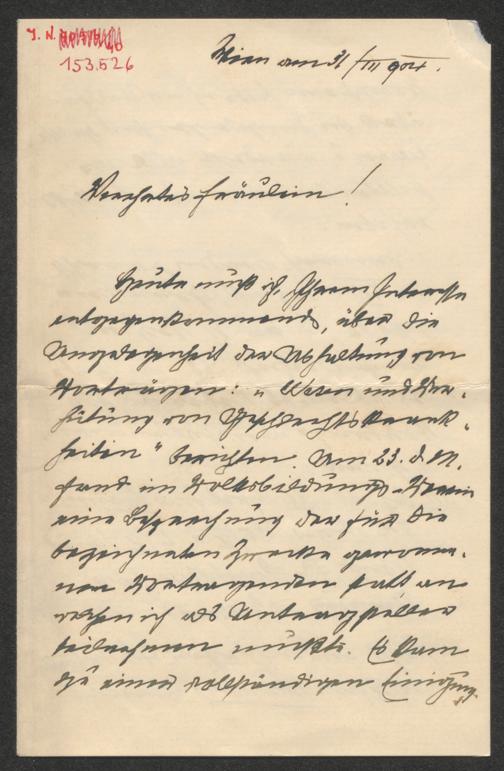 J. N.
153.526
Wien am 31/III 904.
Verehrtes Fräulein!
Heute muß ich, Ihrem Interesse
entgegenkommend, über die
Angelegenheit der Abhaltung von
Vorträgen: „Wesen und Ver-
hütung von Geschlechtskrank-
heiten" berichten. Am 23. d. M.
fand im Volksbildungs-Verein
eine Besprechung der für die
bezeichneten Zwecke gewonne-
nen Vortragenden statt, an
welcher ich als Antragsteller
teilnehmen mußte. Es kam
zu einer vollständigen Einigung